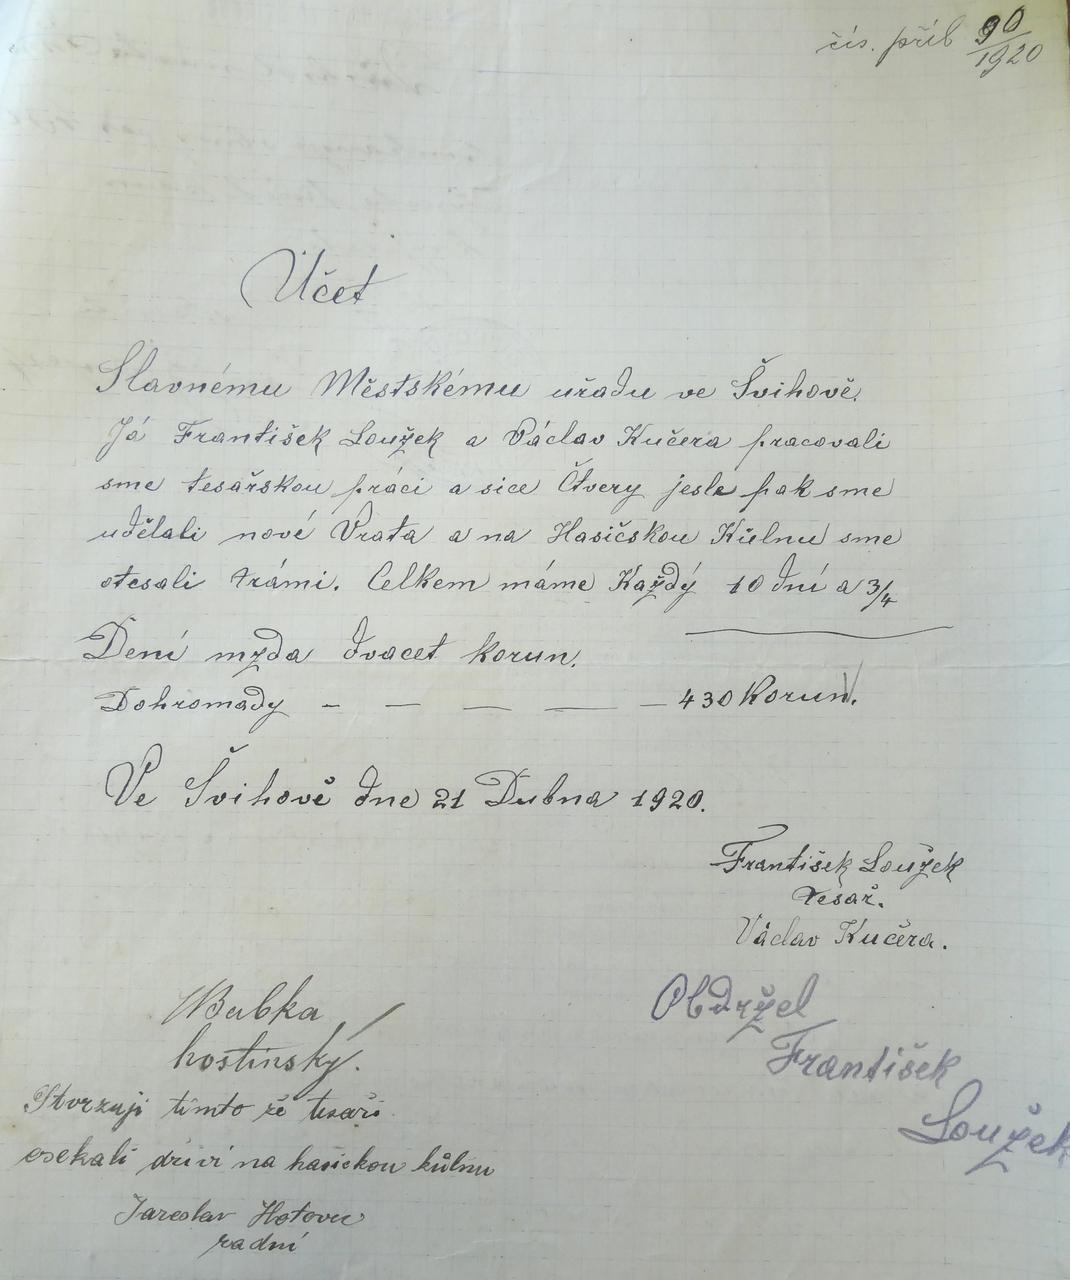 čís. příb 90/1920
Účet
Slavnému Městskému uřadu ve Švihově.
Já František Loužek a Václav Kučera pracovali
sme tesařskou práci a sice Čtvery jesle pak sme
udělali nové Vrata a na Hasičskou Kůlnu sme
otesali trámi. Celkem máme Každý 10 dní a 3/4
Dení mzda dvacet korun.
Dohromady — — — — — 430 Korun.
Ve Švihově dne 21 Dubna 1920.
František Loužek
tesař.
Václav Kučera.
Obdržel
František
Loužek
Bubka
hostinský.
Stvrzuji tímto že tesaři
osekali dříví na hasickou kůlnu
Jaroslav Hotovu
radní